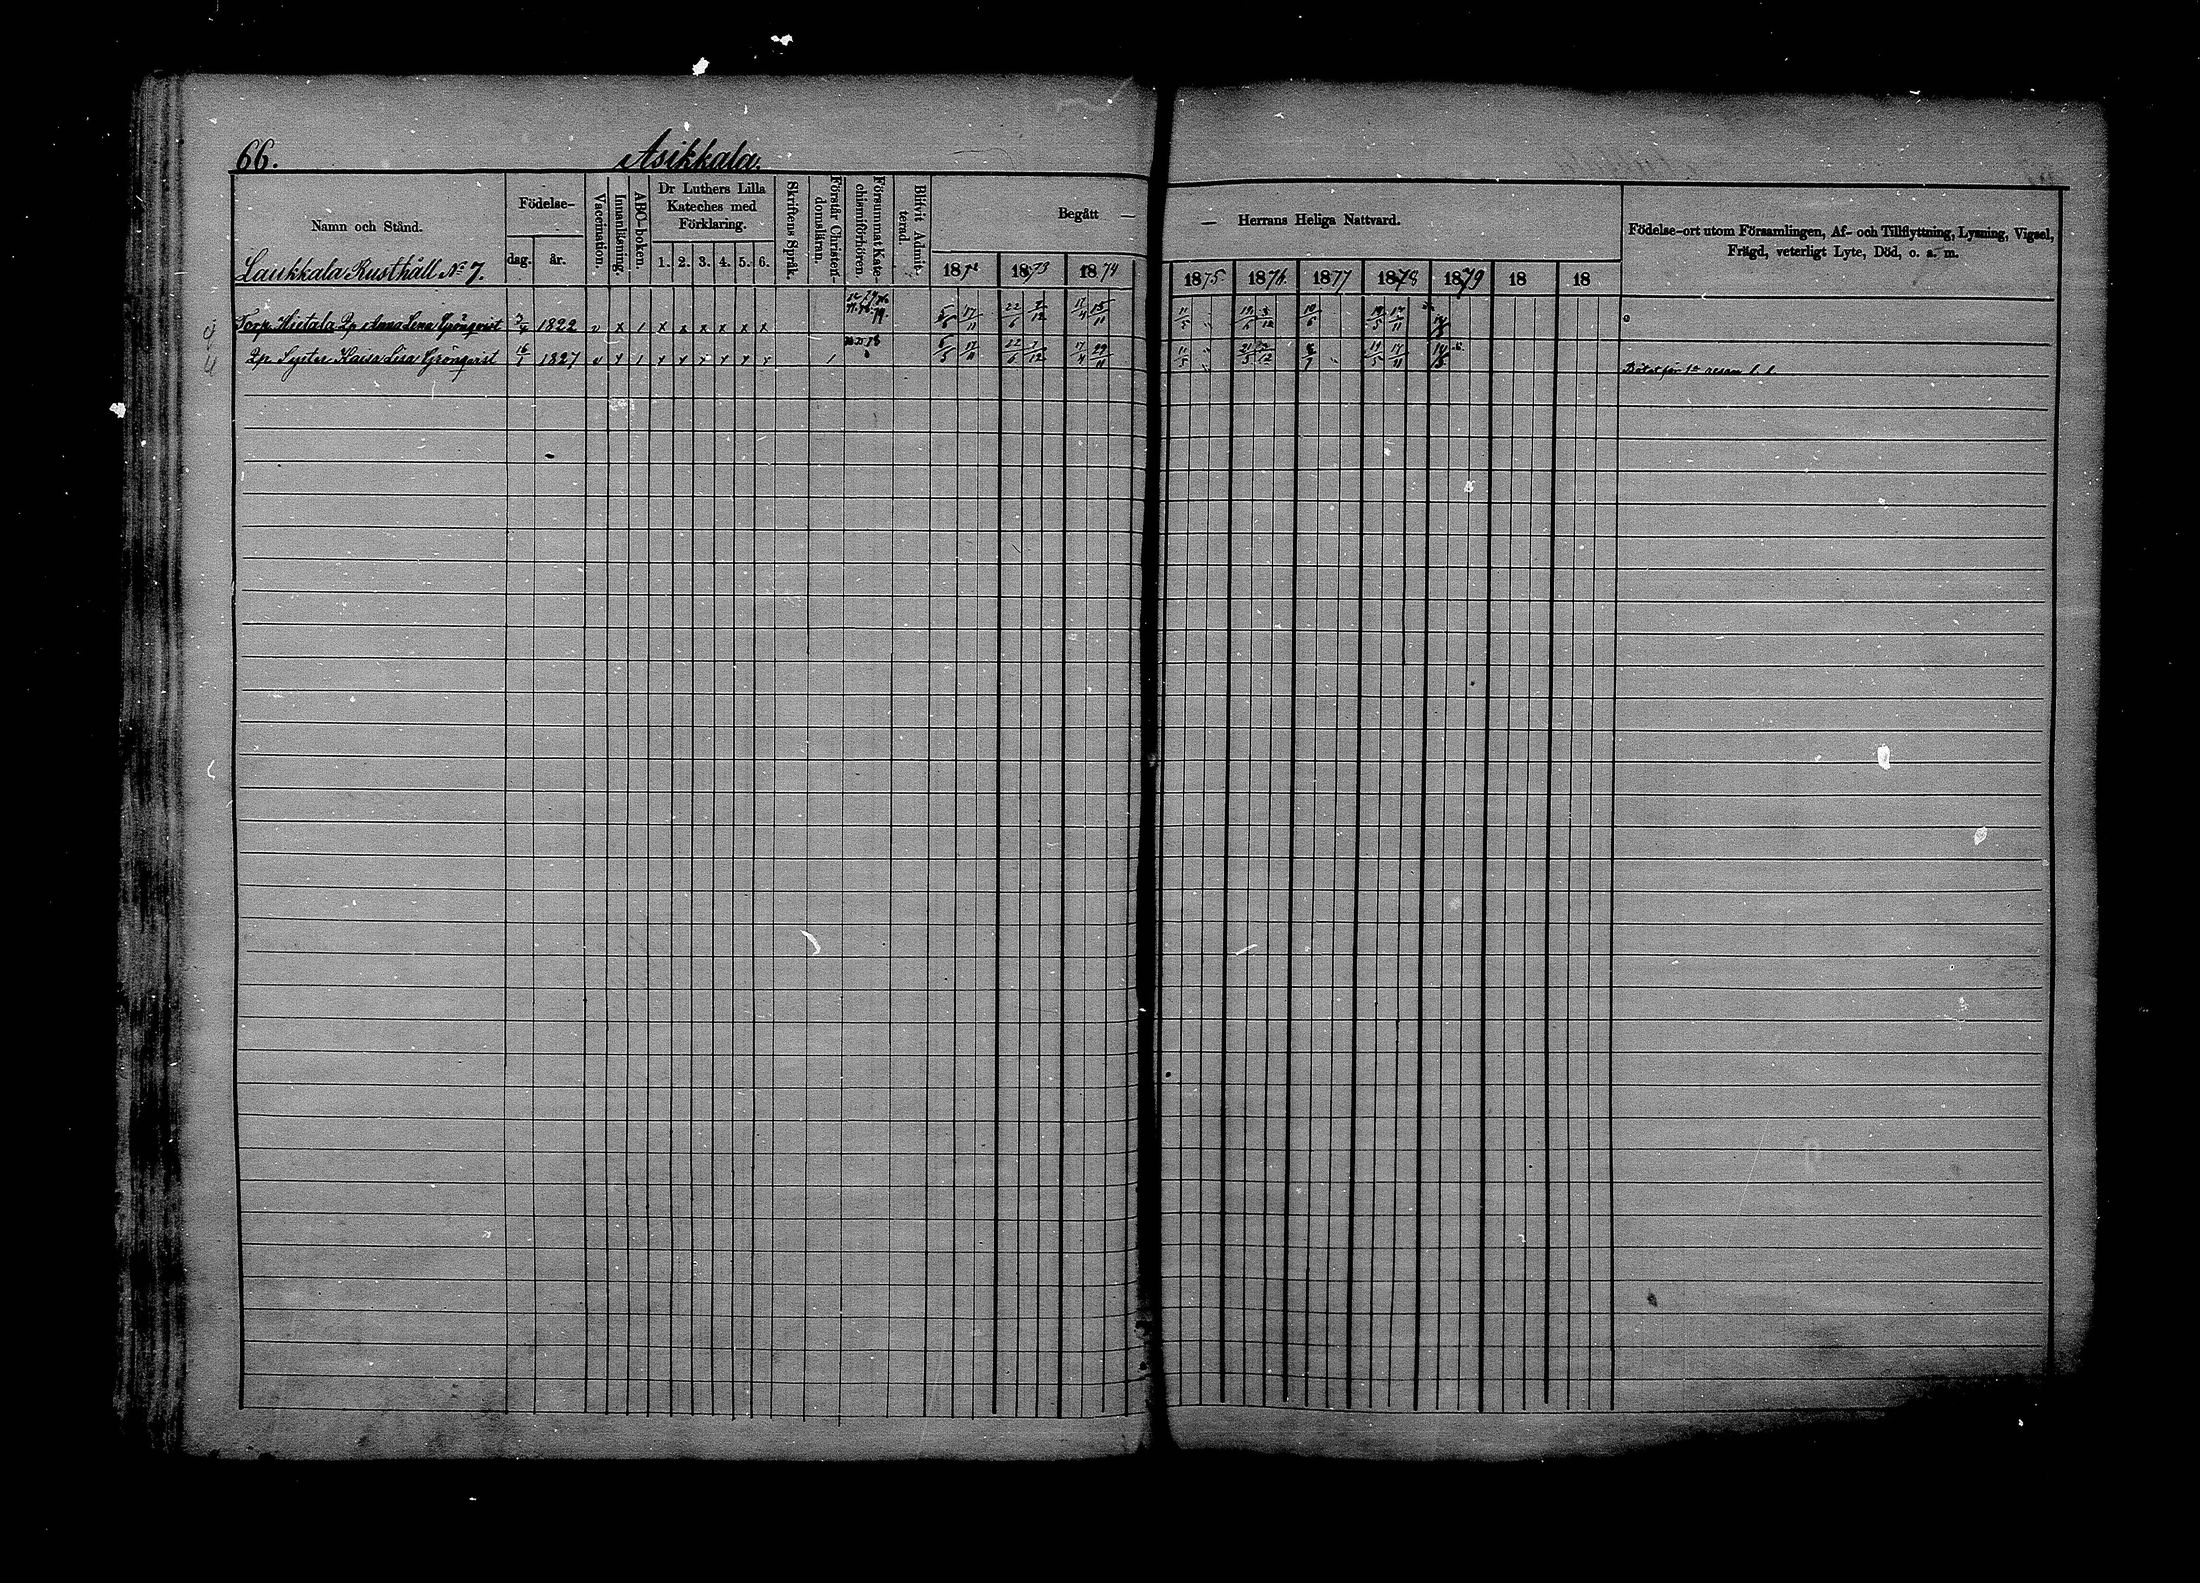 66. Asikkala.
Namn och Stånd.
Laukkala Rusthåll No 7.
Födelse-
dag. år.
Vaccination.
Innanläsning.
ABC-boken.
Dr Luthers Lilla
Kateches med
Förklaring.
1. 2. 3. 4. 5. 6.
Skriftens Språk.
Förstår Christen-
domsläran.
Försummat Kate-
chismiförhören.
Blifvit Admit-
terad.
Begått —
1873 1874
— Herrans Heliga Nattvard.
1875 1876 1877 1878 1879 18 18
Födelse-ort utom Församlingen, Af- och Tillflyttning, Lysning, Vigsel,
Frägd, veterligt Lyte, Död, o. s. m.
Torp. Hietala Anna Lena Grönqvist 1822 v x 1 x x x x x x 5/6 17/11 22/6 7/12 17/4 15/11 11/5 10/6 19/5 17/11
Syster Kaisa Lisa Grönqvist 16/1 1827 v x 1 x x x x x x 1 5/5 17/11 22/6 7/12 17/4 29/11 11/5 21/5 19/5 17/11
Bötat för 1a resan l. l.